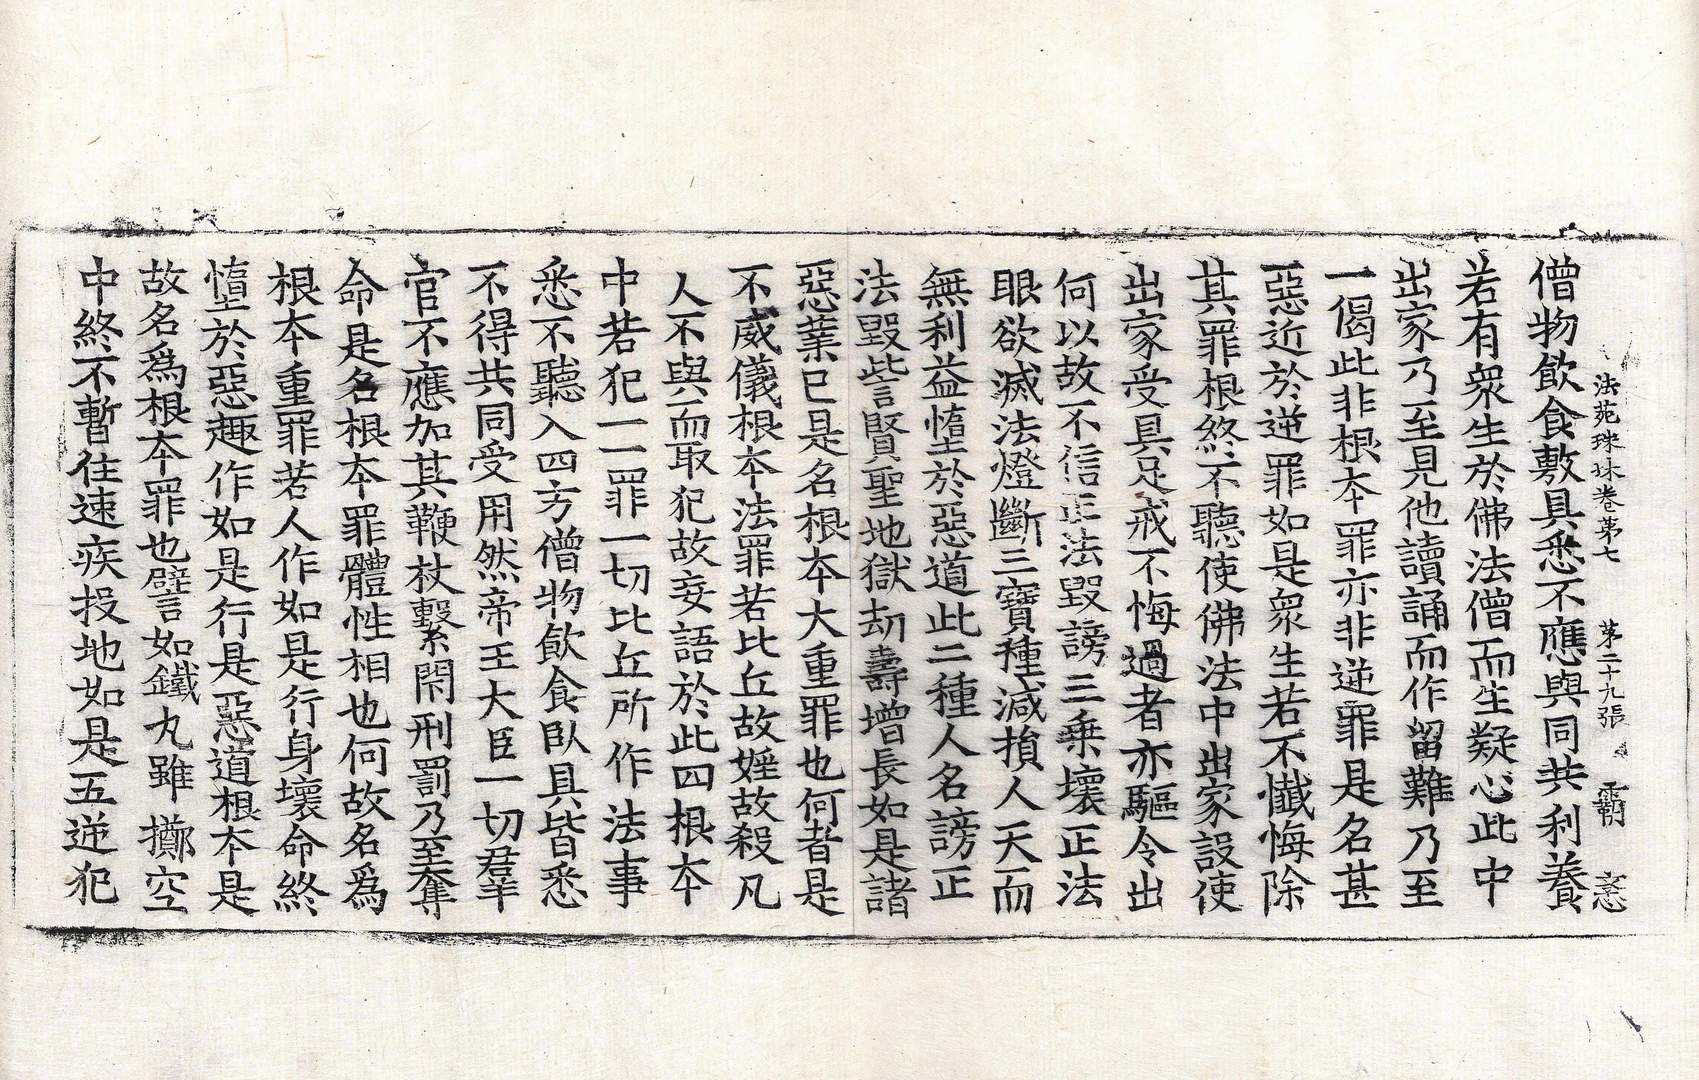 法苑珠林卷第七 第二十九張 霸 忠
僧物飲食敷具悉不應與同共利養
若有衆生於佛法僧而生疑心此中
出家乃至見他讀誦而作留難乃至
一偈此非根本罪亦非逆罪是名甚
惡近於逆罪如是衆生若不懺悔除
其罪根終不聽使佛法中出家設使
出家受具足戒不悔過者亦驅令出
何以故不信正法毀謗三乗壞正法
眼欲滅法燈斷三寶種減損人天而
無利益墮於惡道此二種人名謗正
法毀呰賢聖地獄劫壽增長如是諸
惡業已是名根本大重罪也何者是
不威儀根本法罪若比丘故婬故殺凡
人不與而取犯故妄語於此四根本
中若犯一一罪一切比丘所作法事
悉不聽入四方僧物飲食臥具皆悉
不得共同受用然帝王大臣一切羣
官不應加其鞭杖繫閇刑罰乃至奪
命是名根本罪體性相也何故名爲
根本重罪若人作如是行身壞命終
墮於惡趣作如是行是惡道根本是
故名爲根本罪也譬如鐵丸雖擲空
中終不暫住速疾投地如是五逆犯